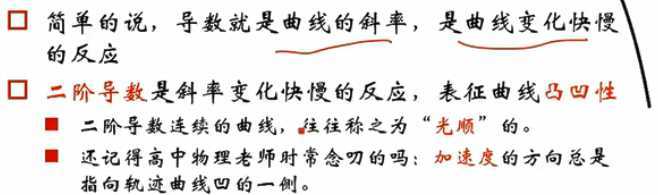 简单的说，导数就是曲线的斜率，是曲线变化快慢
的反应
二阶导数是斜率变化快慢的反应，表征曲线凸凹性
二阶导数连续的曲线，往往称之为“光顺”的。
还记得高中物理老师时常念叨的吗：加速度的方向总是
指向轨迹曲线凹的一侧。